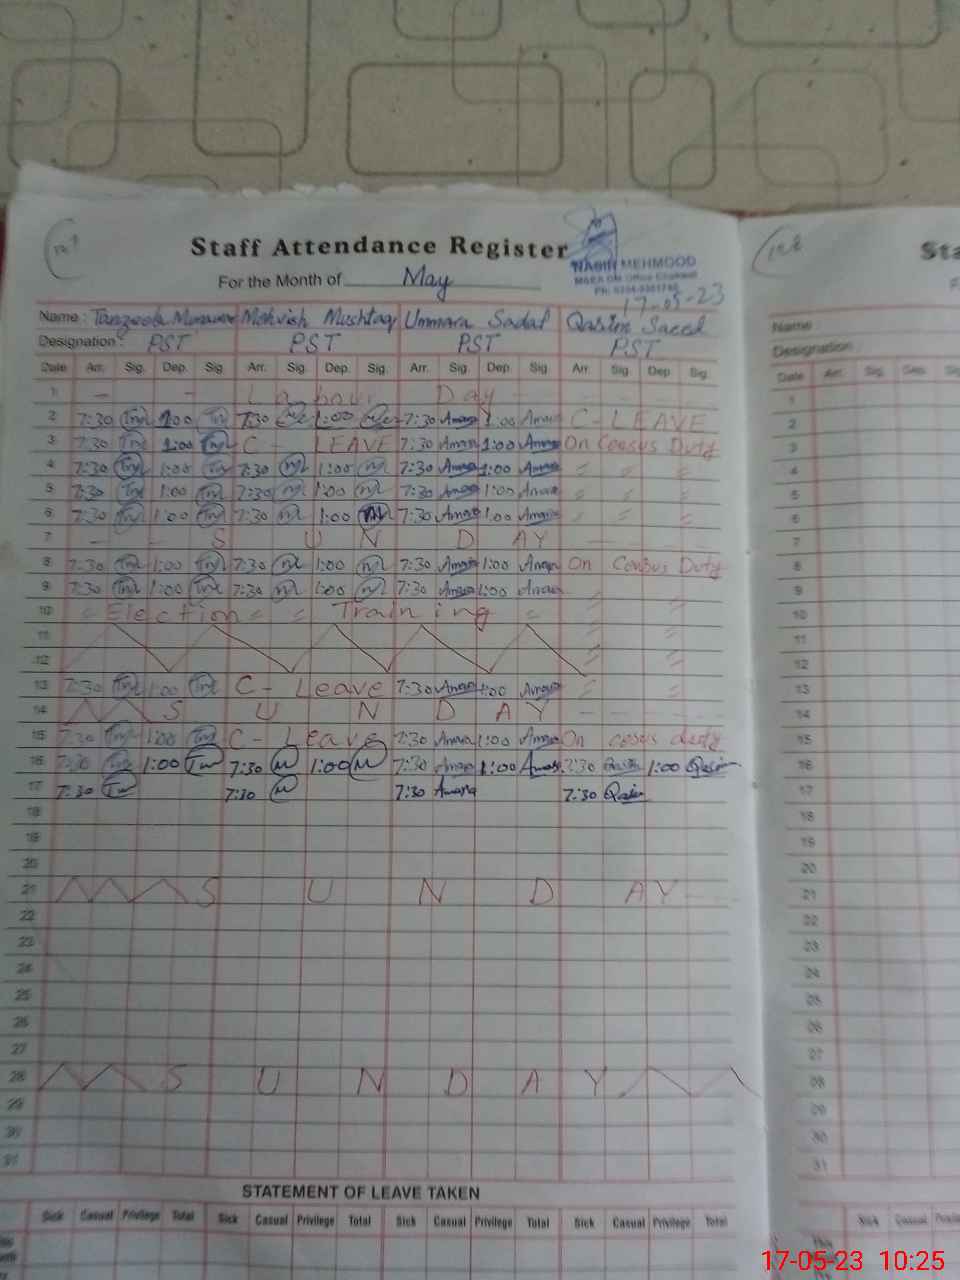 Staff Attendance Register
For the Month of May
NASIR MEHMOOD
17-05-23
Name : Tanzeela Munawar Mehvish Mushtaq Ummara Sadaf Qasim Saeed
Designation : PST PST PST PST
Date Arr. Sig. Dep. Sig. Arr. Sig. Dep. Sig. Arr. Sig. Dep. Sig Arr. Sig. Dep. Sig.
1 - - Labour Day
2 7:30 1:00 7:30 1:00 7:30 1:00 C - LEAVE
3 7:30 1:00 C - LEAVE 7:30 1:00 On Census Duty
4 7:30 1:00 7:30 1:00 7:30 1:00 " " "
5 7:30 1:00 7:30 1:00 7:30 1:00 " " "
6 7:30 1:00 7:30 1:00 7:30 1:00 " " "
7 - - S U N D AY
8 7:30 1:00 7:30 1:00 7:30 1:00 On Census Duty
9 7:30 1:00 7:30 1:00 7:30 1:00 " "
10 Election Training " "
11 " "
12 " "
13 7:30 1:00 C - Leave 7:30 1:00 " "
14 S U N D A Y
15 7:30 1:00 C - Leave 7:30 1:00 On cesus duty
16 7:30 1:00 7:30 1:00 7:30 1:00 7:30 Qasim 1:00 Qasim
17 7:30 7:30 7:30 Amara 7:30 Qasim
18
19
20
21 S U N D A Y
22
23
24
25
26
27
28 S U N D A Y
29
30
31
STATEMENT OF LEAVE TAKEN
Sick Casual Privilege Total Sick Casual Privilege Total Sick Casual Privilege Total Sick Casual Privilege Total
Sta
Name
Designation
Date Arr. Sig. Dep.
1
2
3
4
5
6
7
8
9
10
11
12
13
14
15
16
17
18
19
20
21
22
23
24
25
26
27
28
29
30
31
Sick Casual
This
17-05-23 10:25